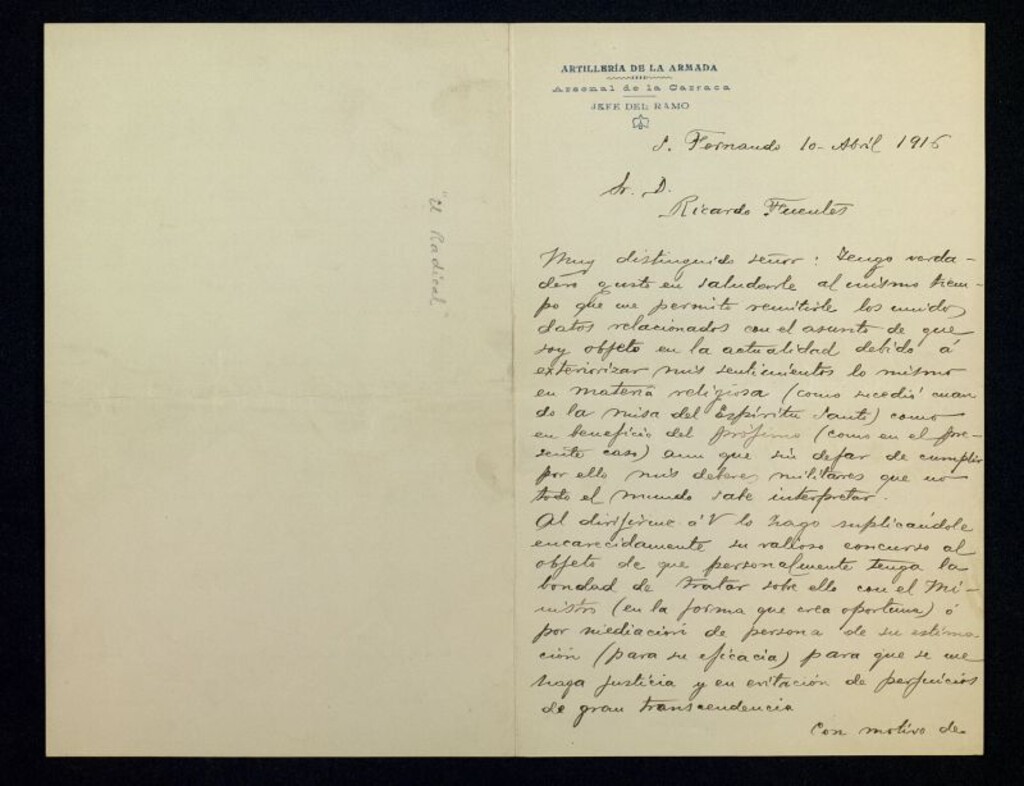 "El Radical"
ARTILLERÍA DE LA ARMADA
Arsenal de la Carraca
JEFE DEL RAMO
S. Fernando 10 - Abril 1916
Sr. D.
Ricardo Fuentes
Muy distinguido señor: Tengo verda-
dero gusto en saludarle al mismo tiem-
po que me permito remitirle los unidos
datos relacionados con el asunto de que
soy objeto en la actualidad debido á
exteriorizar mis sentimientos lo mismo
en materia religiosa (como sucedió cuan
do la misa del Espíritu Santo) como
en beneficio del prójimo (como en el pre-
sente caso) aun que sin dejar de cumplir
por ello mis deberes militares que no
todo el mundo sabe interpretar.
Al dirijirme á V lo hago suplicándole
encarecidamente su valioso concurso al
objeto de que personalmente tenga la
bondad de tratar sobre ello con el Mi-
nistro (en la forma que crea oportuna) ó
por mediación de persona de su estima-
ción (para su eficacia) para que se me
haga justicia y en evitación de perjuicios
de gran transcendencia
Con motivo de